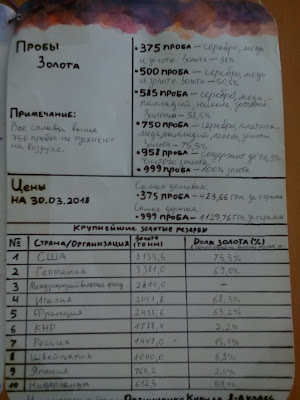 Пробы
Золота
• 375 ПРОБА – серебро, медь
и золото. Золота – 38%
• 500 ПРОБА – серебро, медь
и золото. Золота – 50,5%
• 585 ПРОБА – серебро, медь,
палладий, никель, золото.
Золота – 58,5%
• 750 ПРОБА – серебро, платина,
медь, палладий, никель, золото.
Золота – 75,5%
• 958 ПРОБА – содержит до 96,3%
чистого золота
• 999 ПРОБА – 100% золота
Примечание:
Все сплавы выше
750 пробы не тускнеют
на воздухе.
Цены
НА 30.03.2018
Самая дешевая:
• 375 ПРОБА – 423,66 грн. за 1 грамм
Самая дорогая:
• 999 ПРОБА – 1129,76 грн. за грамм
Крупнейшие золотые резервы
№ Страна/Организация Золота (тонн) Доля золота (%)
1 США 8133,5 75,3%
2 Германия 3381,0 69,0%
3 Международный валютный фонд 2814,0 —
4 Италия 2451,8 68,3%
5 Франция 2435,6 63,2%
6 КНР 1788,4 2,2%
7 Россия 1447,0 15,1%
8 Швейцария 1040,0 6,8%
9 Япония 765,2 2,4%
10 Нидерланды 612,5
Кирилл 8-А класс